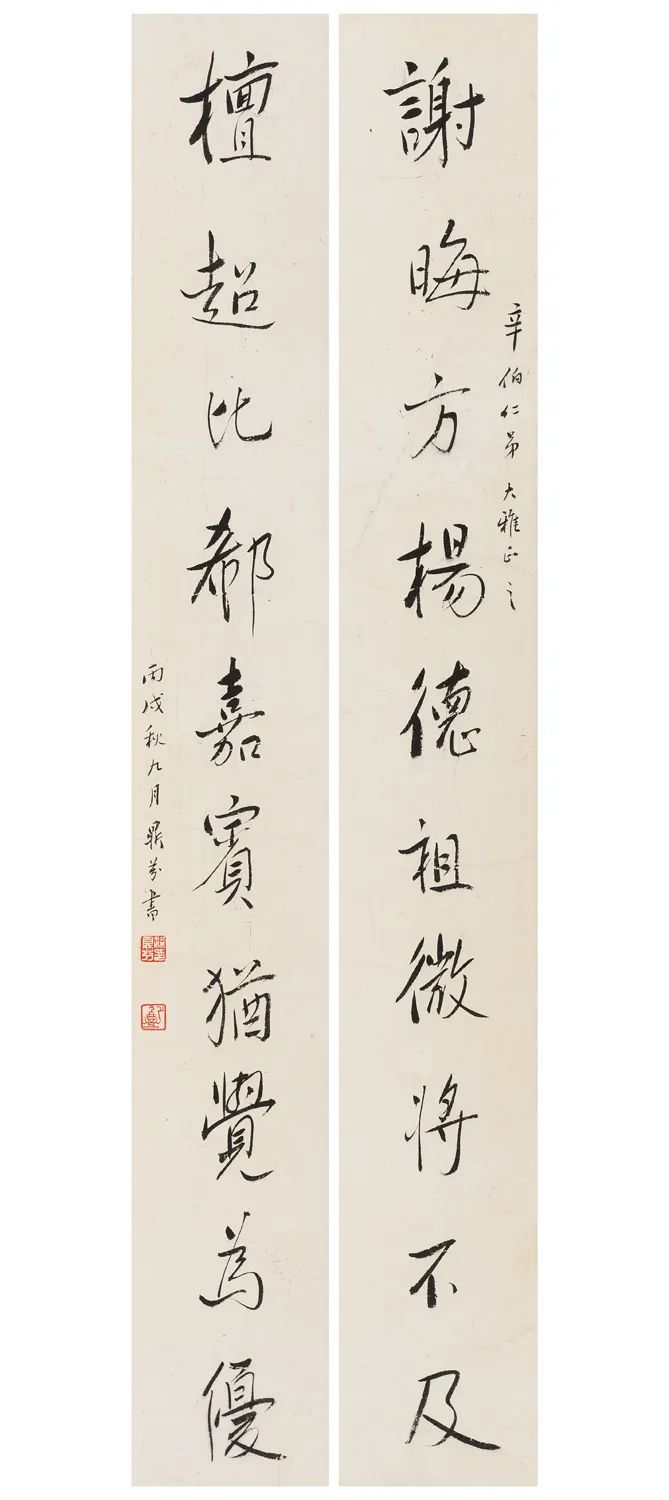 謝晦方楊德祖微將不及
辛伯仁弟大雅正之
檀超比郗嘉賓猶覺為優
丙戌秋九月鼎芬書